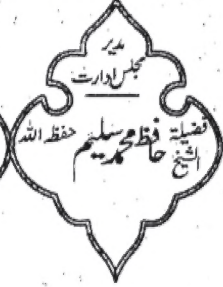 مدیر
مجلس ادارت
فضیلة الشیخ حافظ محمد سلیم حفظہ اللہ